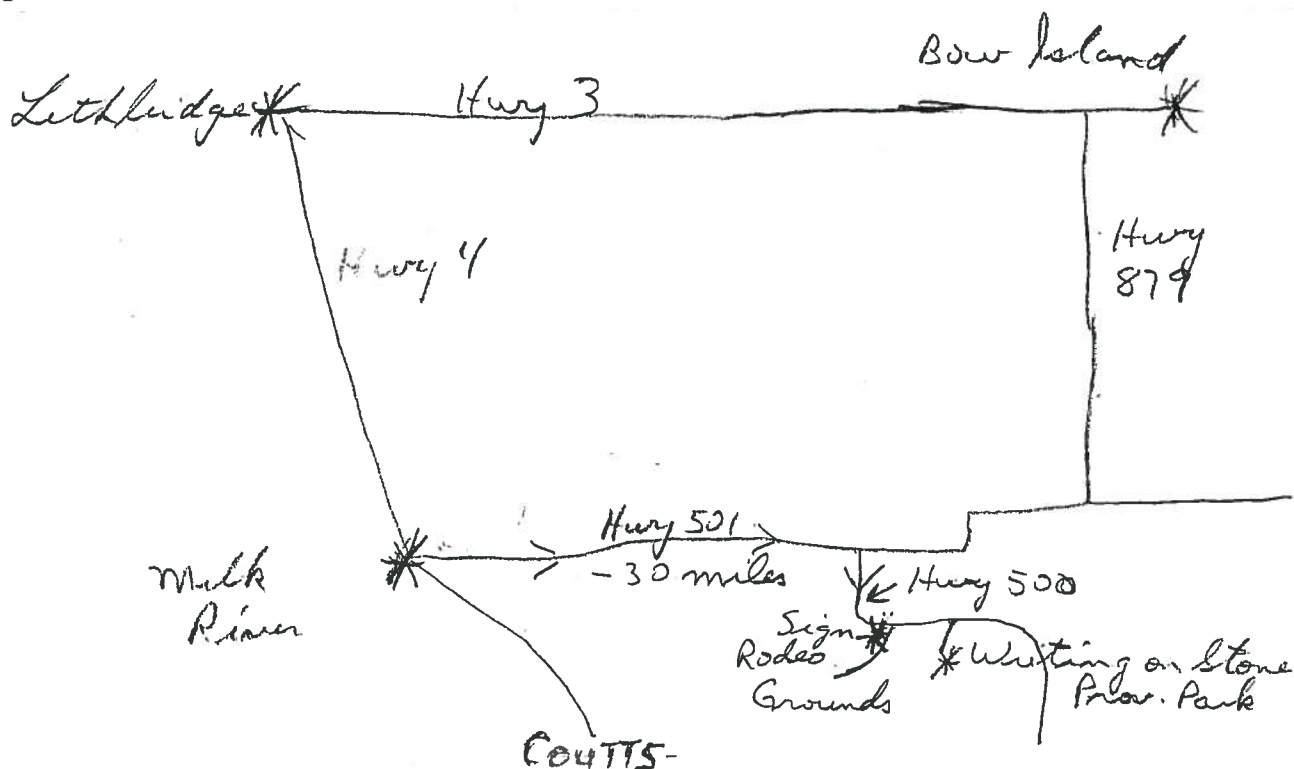 Bow Island
Lethbridge
Hwy 3
Hwy
879
Hwy 4
Hwy 501
-30 miles
Milk
River
Hwy 500
Sign
Rodeo
Grounds
Writing on Stone
Prov. Park
COUTTS-